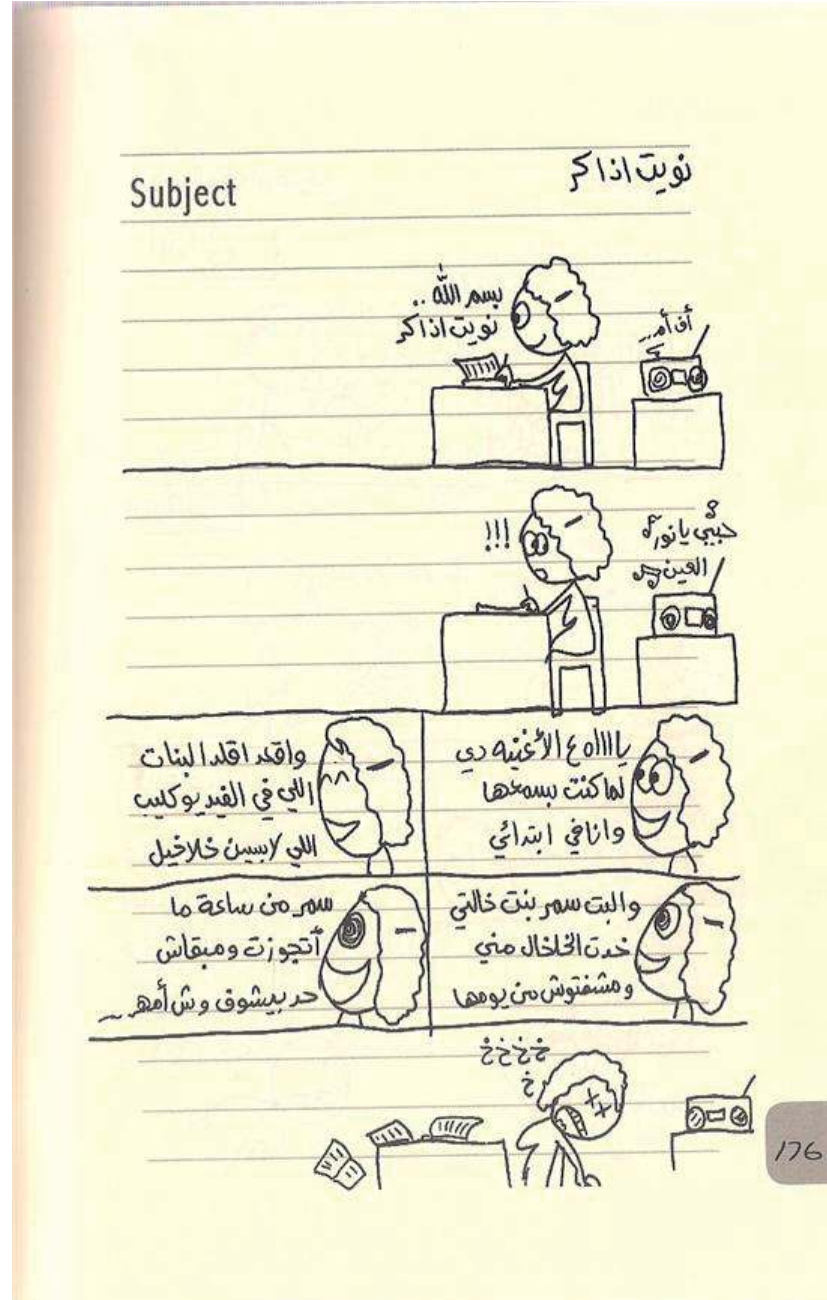 نويت اذاكر
Subject
أف أم...
بسم الله ..
نويت اذاكر
حبيبي يا نور
العين
!!!
ياااااه ع الأغنيه دي
لما كنت بسمعها
وانا في ابتدائي
واقعد اقلد البنات
اللي في الفيديو كليب
اللي لابسين خلاخيل
والبت سمر بنت خالتي
خدت الخلخال مني
ومشفتوش من يومها
سمر من ساعة ما
أتجوزت ومبقاش
حد بيشوف وش أمها...
خخخخ
خ
176